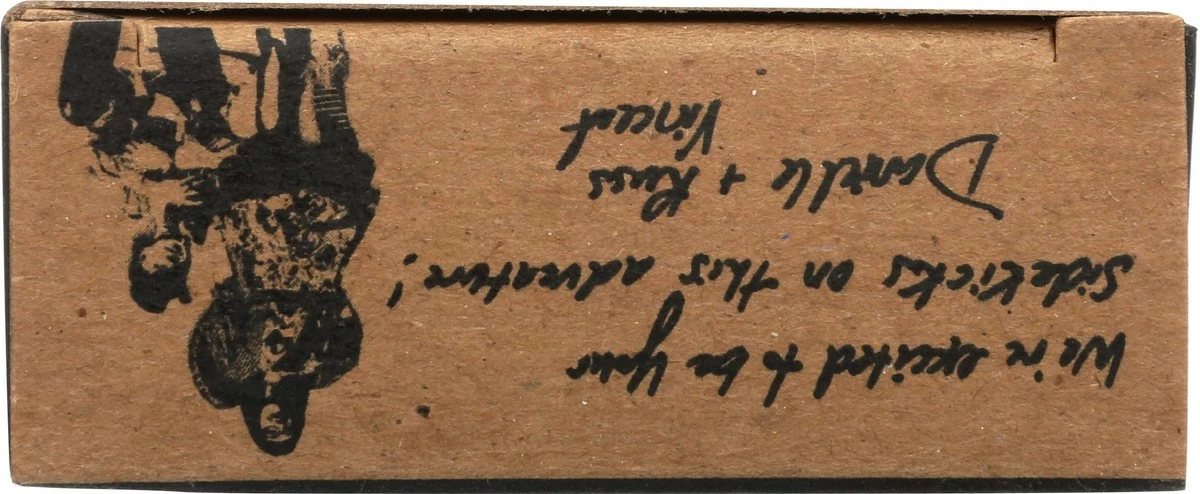 We're excited to be your
sidekicks on this adventure!
Danielle + Russ
Vincent